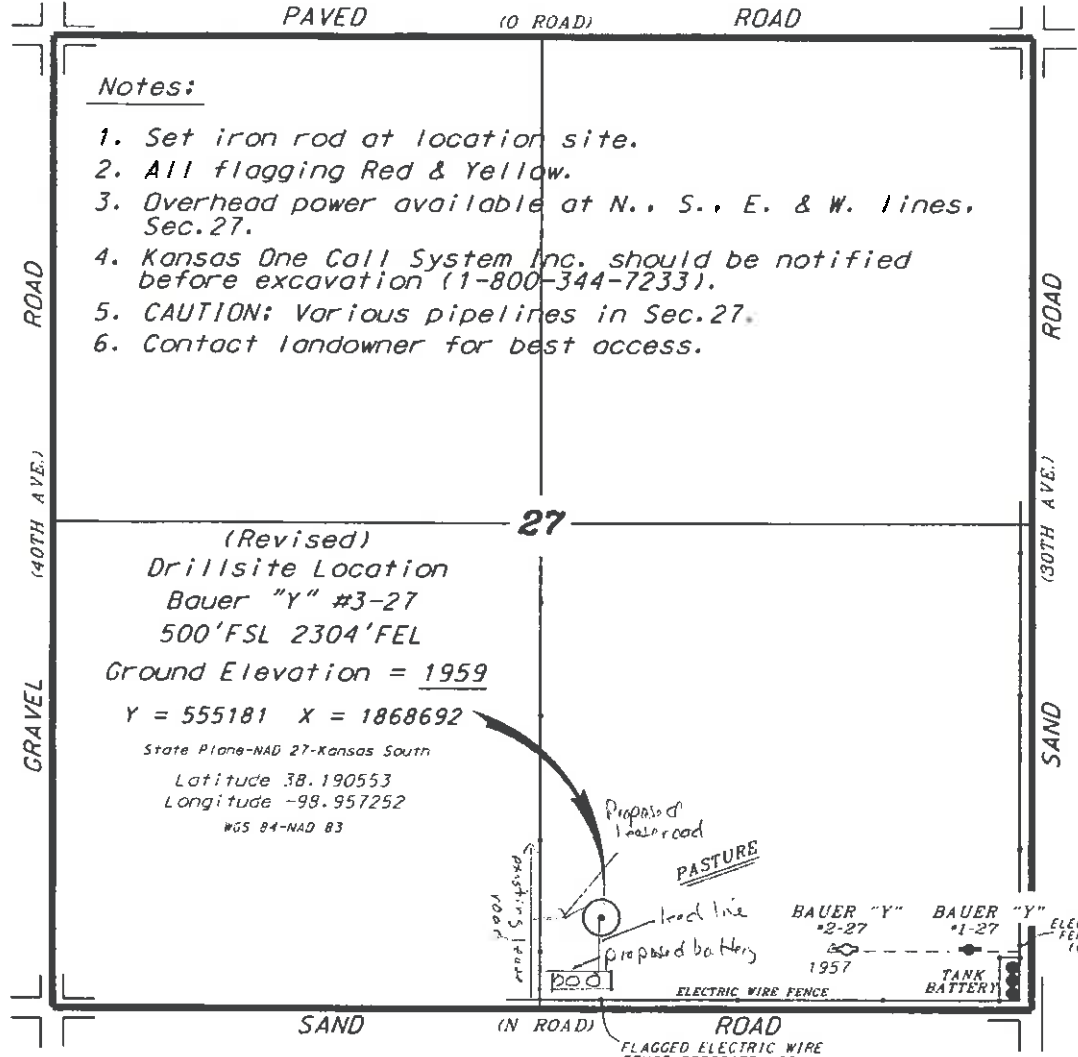 PAVED (O ROAD) ROAD
Notes:
1. Set iron rod at location site.
2. All flagging Red & Yellow.
3. Overhead power available at N., S., E. & W. lines,
Sec.27.
4. Kansas One Call System Inc. should be notified
before excavation (1-800-344-7233).
5. CAUTION: Various pipelines in Sec.27.
6. Contact landowner for best access.
ROAD
(40TH AVE.)
GRAVEL
ROAD
(30TH AVE.)
SAND
27
(Revised)
Drillsite Location
Bauer "Y" #3-27
500'FSL 2304'FEL
Ground Elevation = 1959
Y = 555181 X = 1868692
State Plane-NAD 27-Kansas South
Latitude 38.190553
Longitude -98.957252
WGS 84-NAD 83
Proposed
lease road
PASTURE
existing lease
road
lead line
proposed battery
BAUER "Y"
#2-27
1957
BAUER "Y"
#1-27
TANK
BATTERY
ELECTRIC WIRE FENCE
SAND (N ROAD) ROAD
FLAGGED ELECTRIC WIRE